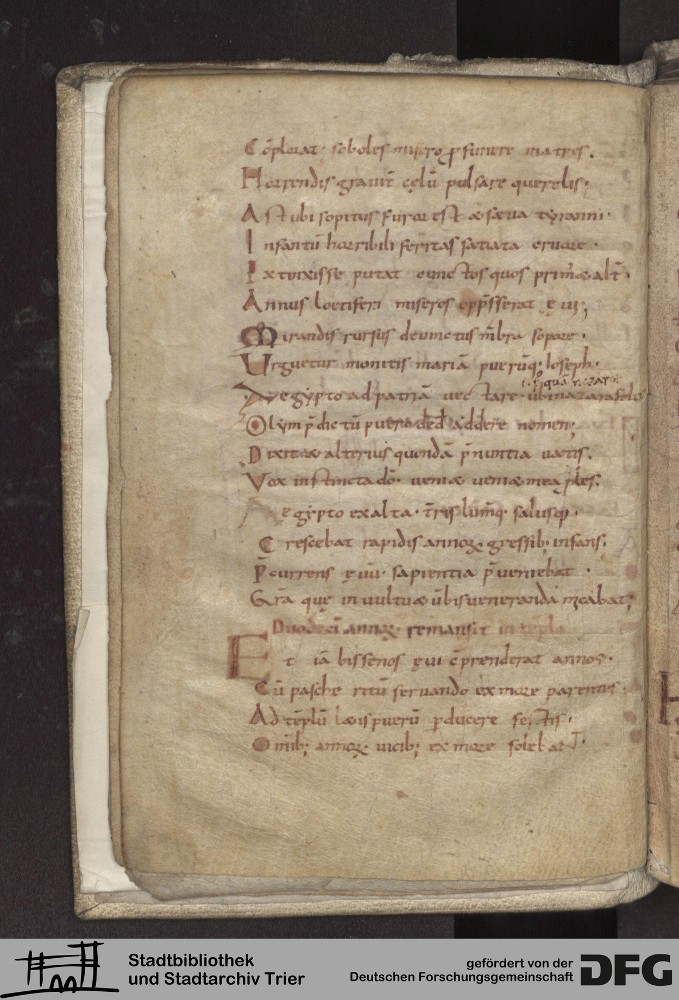 Cōplorat· soboles misero ꝓ funere matres.
Horrendis grauit̄ cęlū pulsare querelis·
Ast ubi sopitus furor est & sæua tyranni·
Infantū horribili feritas satiata cruore·
Extinxisse putat cunctos quos prim& alt̄·
Annus loetiferi miseros opp̄sserat ęui;
Mirandis rursus deuinctus m̄bra sopore·
Urguetur monitis mariā puerūq; Ioseph·
Aegypto ad patriā uectare· ubi nazara felix
Olym p̄dictū puero ded addere nomen;
Dixit & alterius quondā p̄nuntia uatis.
Vox instincta dō· ueni& ueni& mea ꝓles.
Aegypto exalta· t̄ris lumq; salusq·
Crescebat rapidis annoꝝ gressib; infans·
P̄currens ęuū· sapientia p̄ueniebat·
Gr̄a que in uultu & ūbis ueneranda micabat;
Duodeci annoꝝ remansit in templo
Et iā bissenos ęui c̄prenderat annos·
Cū pasche ritū seruando ex more parentes·
Ad tēplū lætis puerū ꝑducere festis·
Omīb; annoꝝ uicib; ex more solebat
Stadtbibliothek
und Stadtarchiv Trier
gefördert von der
Deutschen Forschungsgemeinschaft
DFG